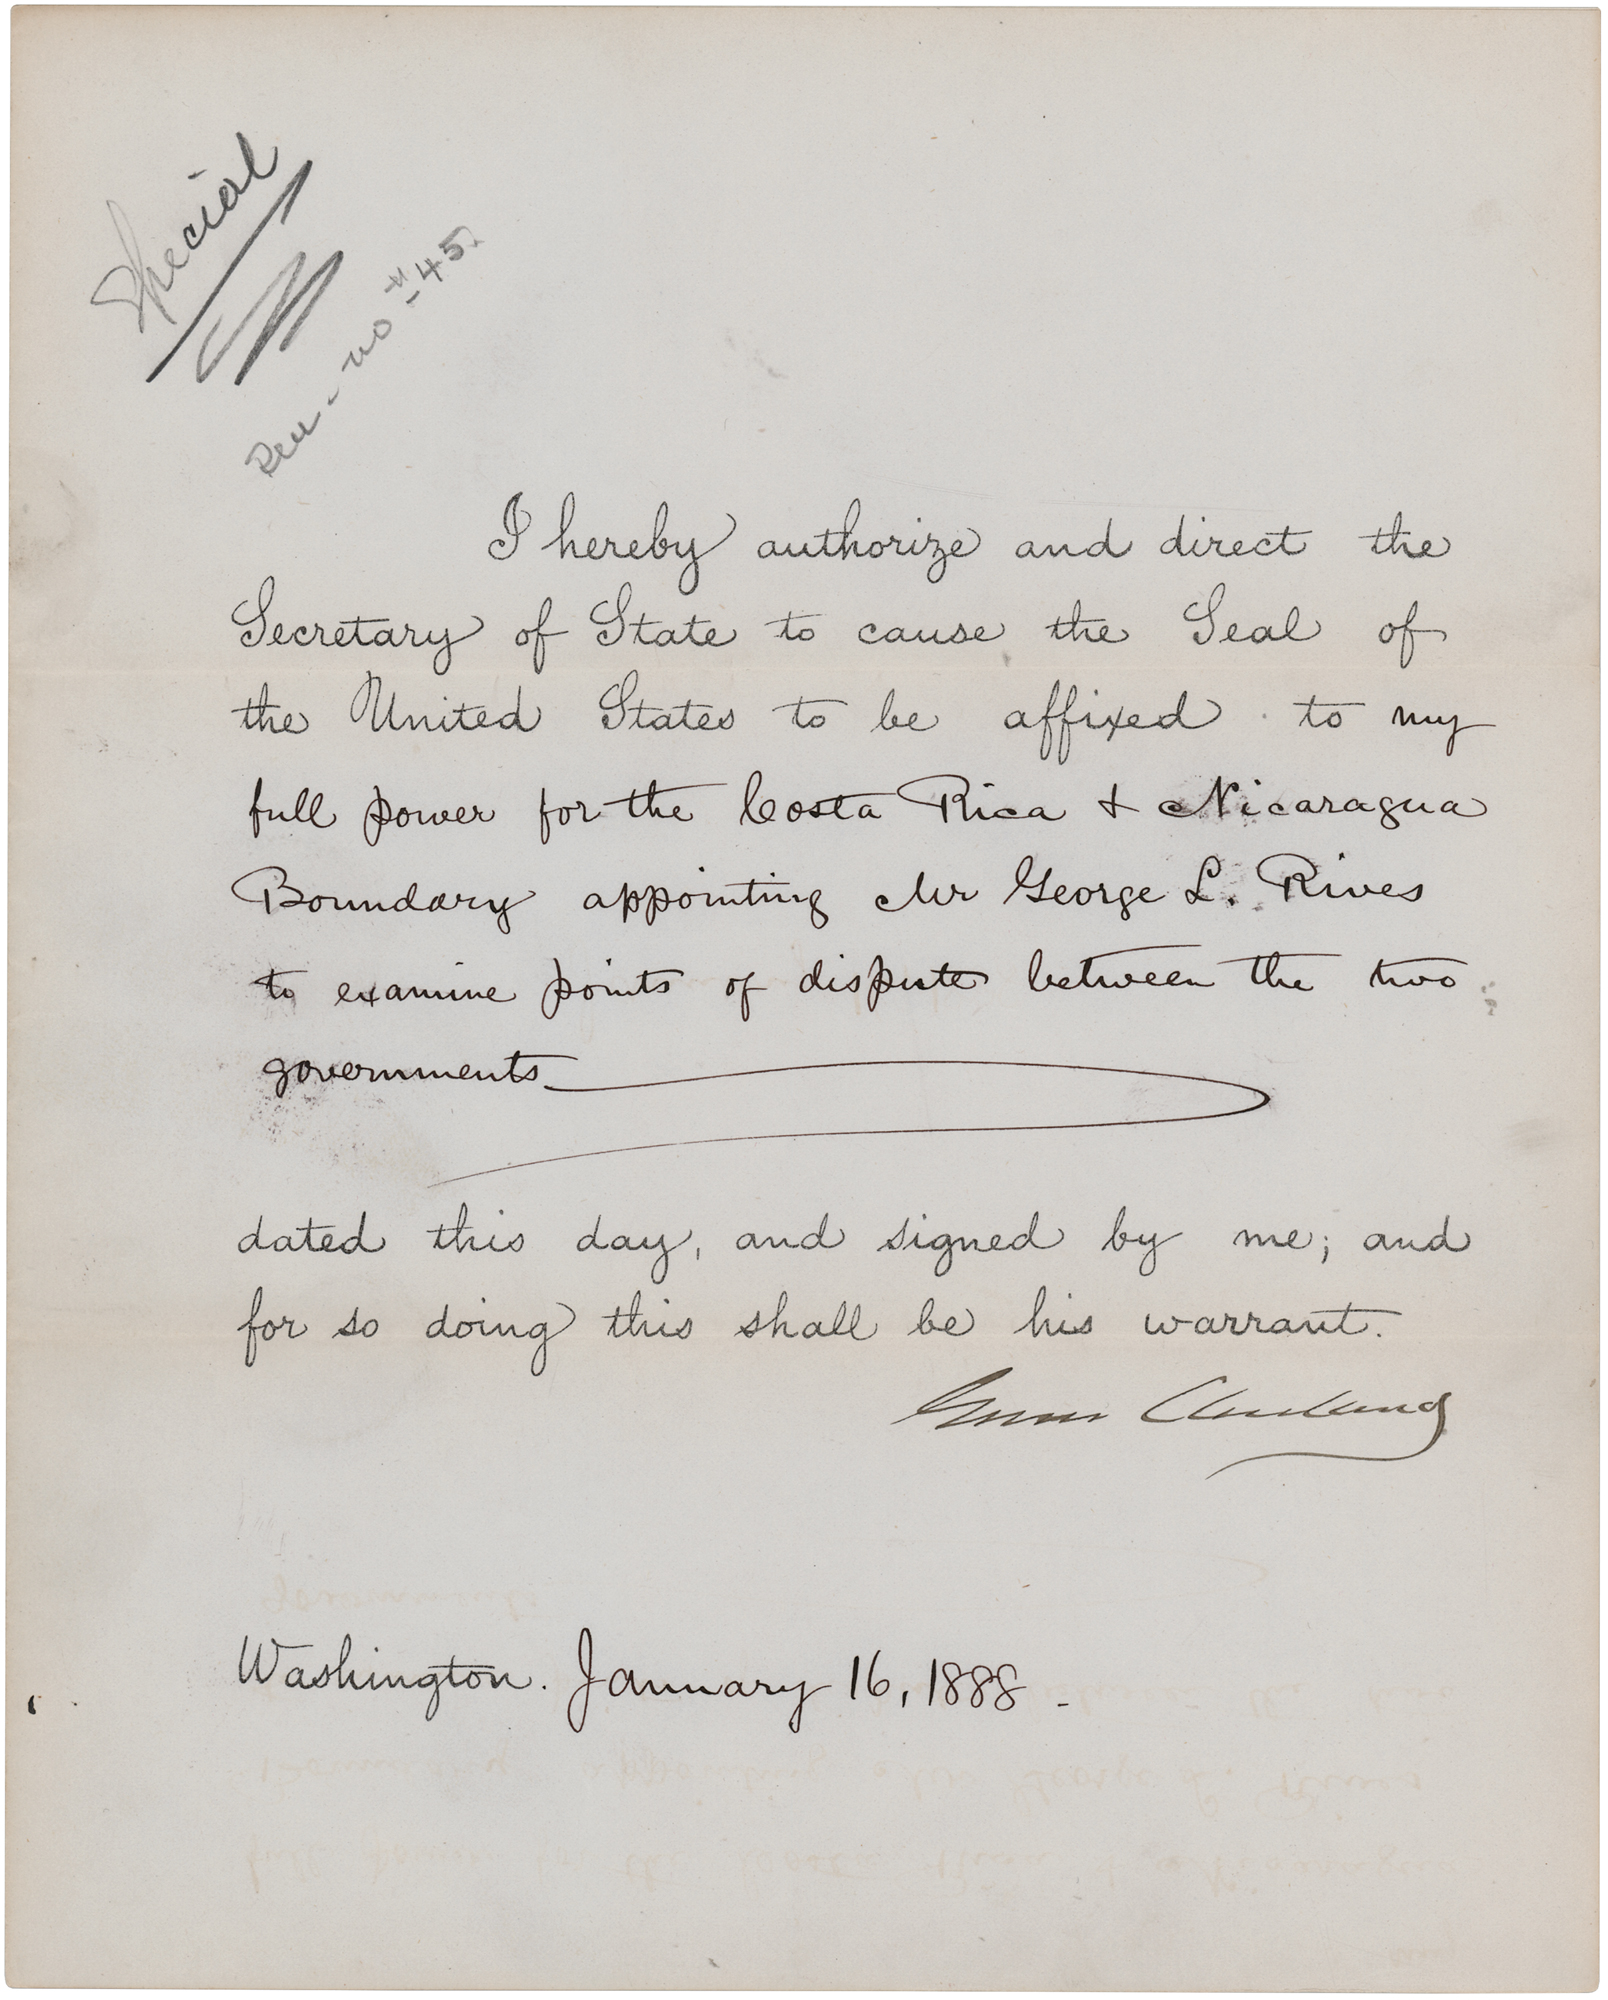 Special
no # 45.
I hereby authorize and direct the
Secretary of State to cause the Seal of
the United States to be affixed to my
full power for the Costa Rica & Nicaragua
Boundary appointing Mr George L. Rives
to examine points of dispute between the two
governments
dated this day, and signed by me; and
for so doing this shall be his warrant.
Grover Cleveland
Washington. January 16, 1888.